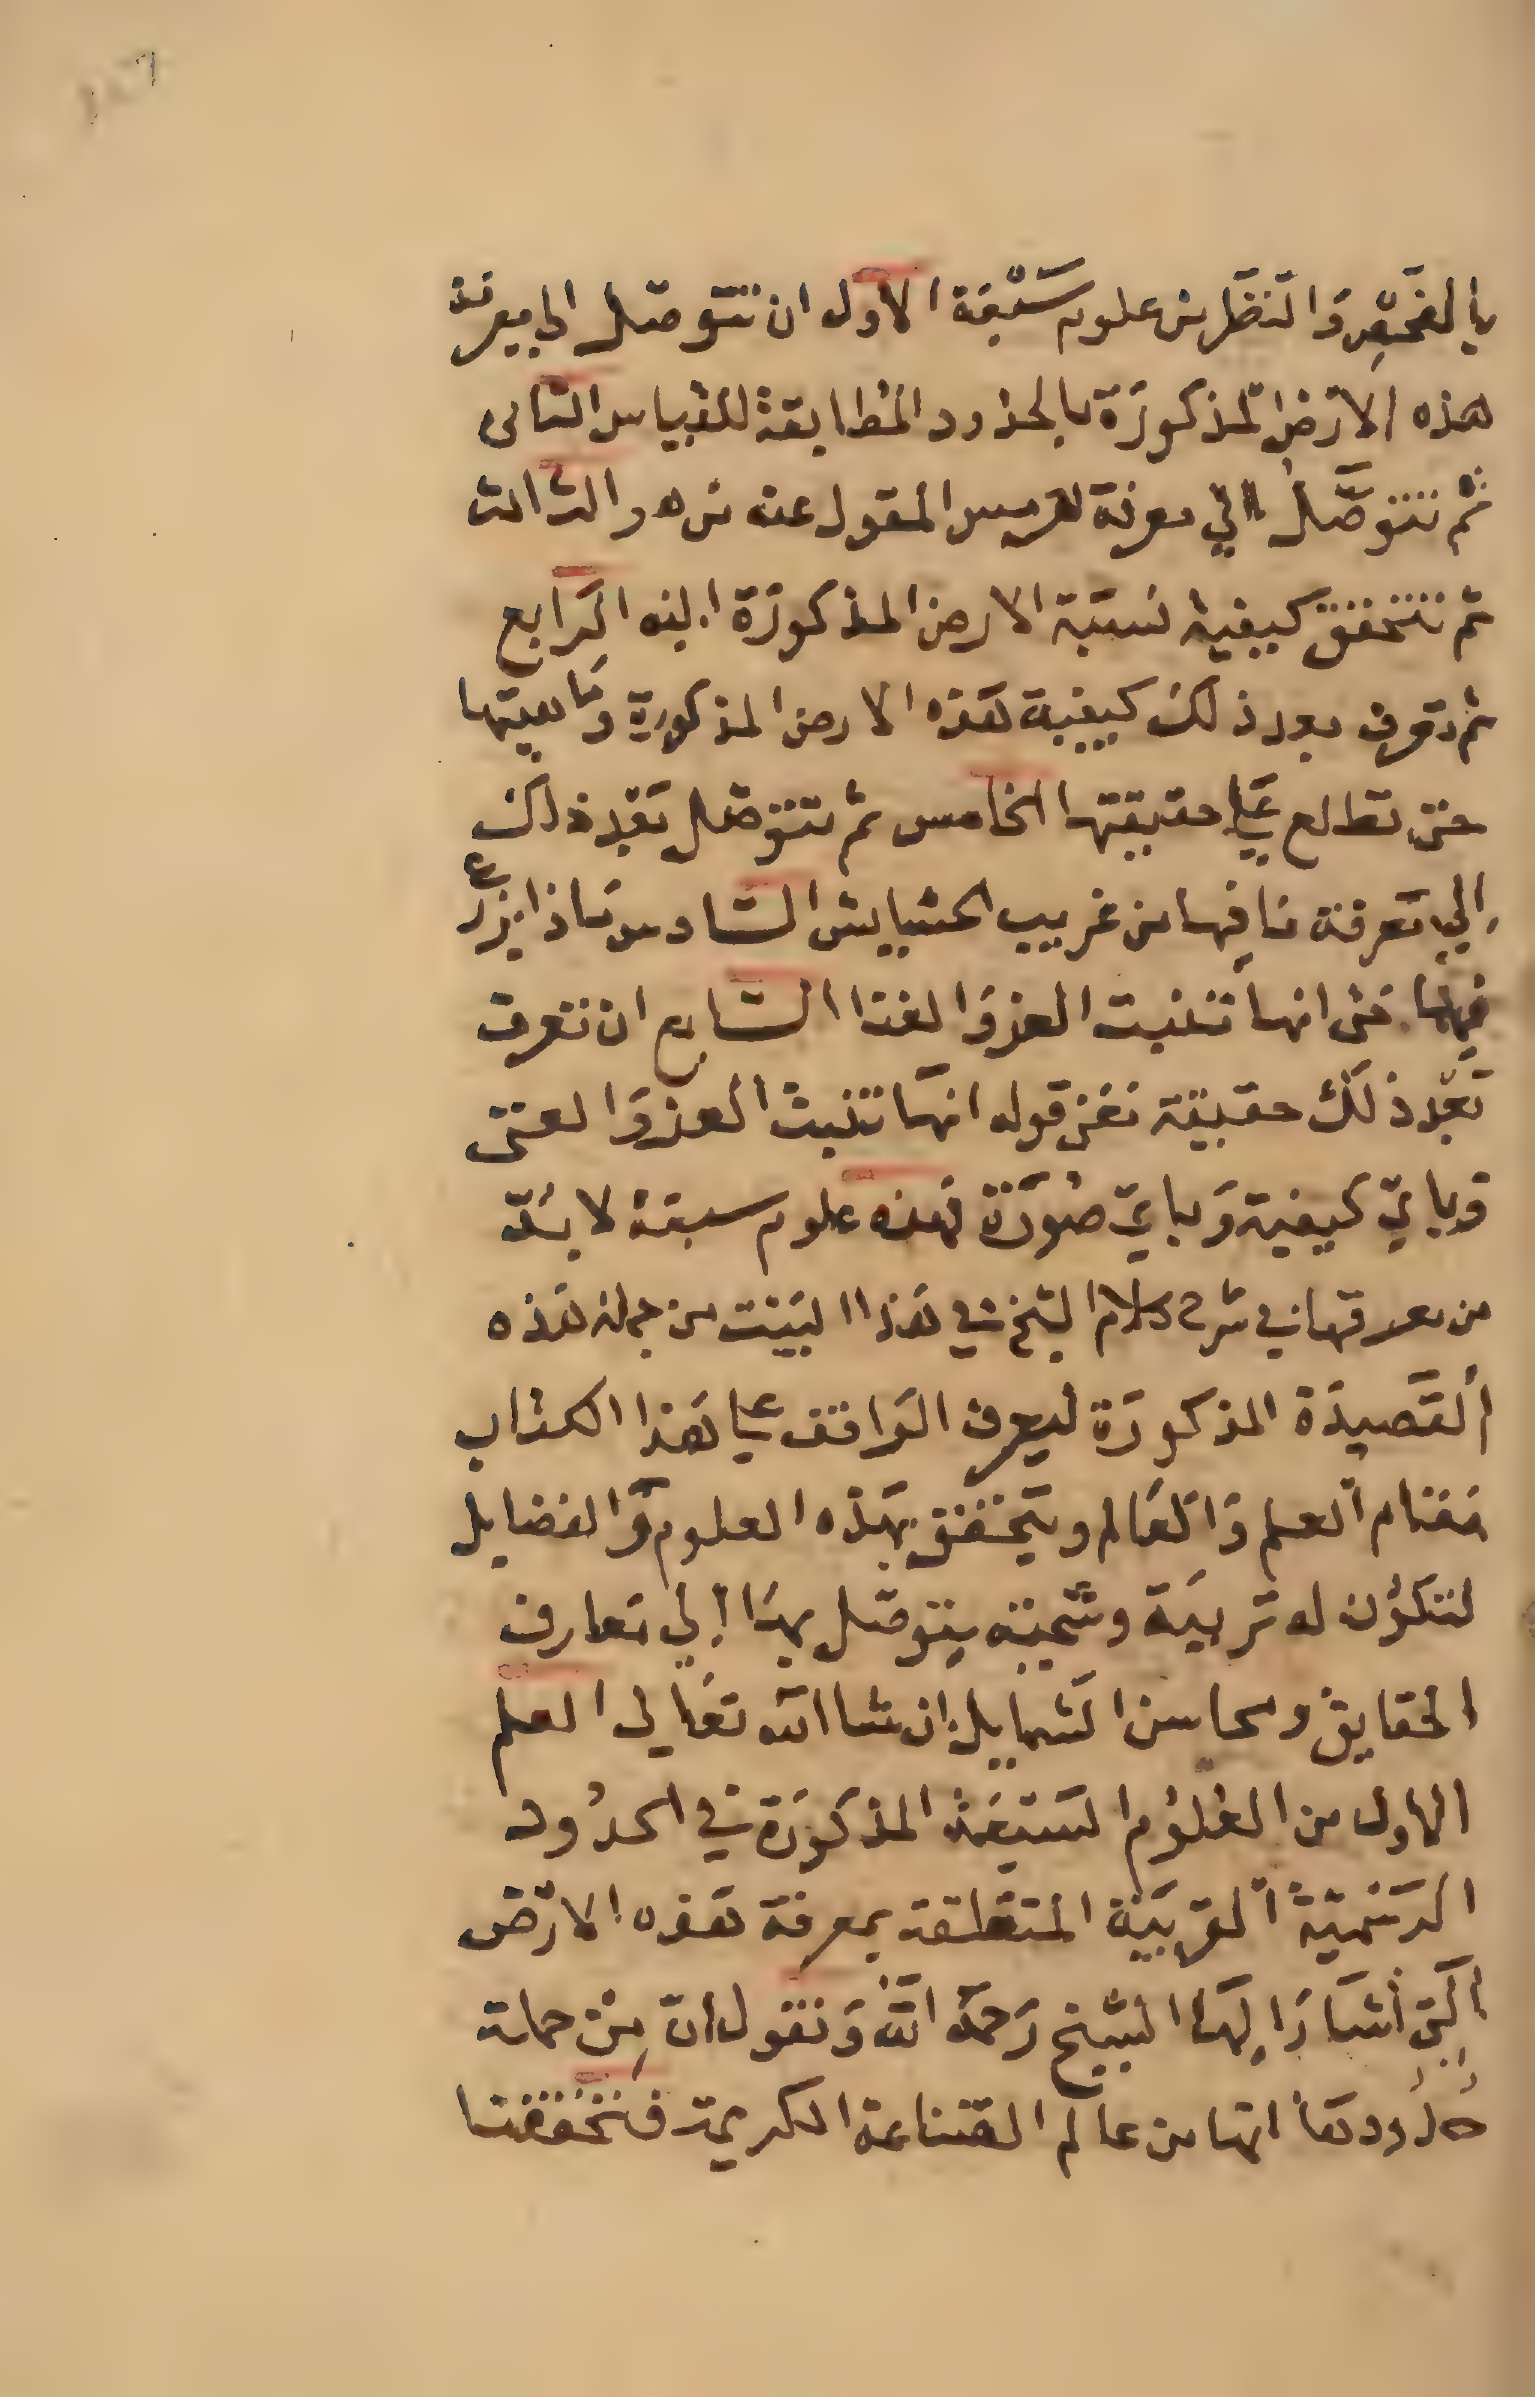 بالفحص والنظر من علوم سبعة الاول ان تتوصل الي معرفة
هذه الارض المذكورة بالحدود المطابقة للقياس الثاني
ثم تتوصل الي معرفة هرمس المقول عنه من هو الثالث
ثم تتحقق كيفية نسبة الارض المذكورة اليه الرابع
ثم تعرف بعد ذلك كيفية هذه الارض المذكورة وماهيتها
حتى تطالع علي حقيقتها الخامس ثم تتوصل بعد ذلك
الي معرفة ما فيها من غريب الحشايش السادس ماذا يزرع
فيها حتى انها تنبت العز والغنا السابع ان تعرف
بعد ذلك حقيقة معنى قوله انها تنبت العز والغنى
وباي كيفية وباي صورة فهذه علوم سبعة لا بد
من معرفتها في شرح كلام الشيخ في هذا البيت من جملة هذه
القصيدة المذكورة ليعرف الواقف علي هذا الكتاب
مقام العلم والعالم ويتحقق بهذه العلوم والفضايل
لتكون له تربية يتوصل بها الي معارف
الحقايق ومحاسن الشمايل ان شا الله تعالي العلم
الاول من العلوم السبعة المذكورة في الحدود
الرسمية القريبة المتعلقة بمعرفة هذه الارض
التي أشار اليها الشيخ رحمه الله ونقول ان من جملة
حدودها انها من عالم الصناعة الكريمة فتحققنا